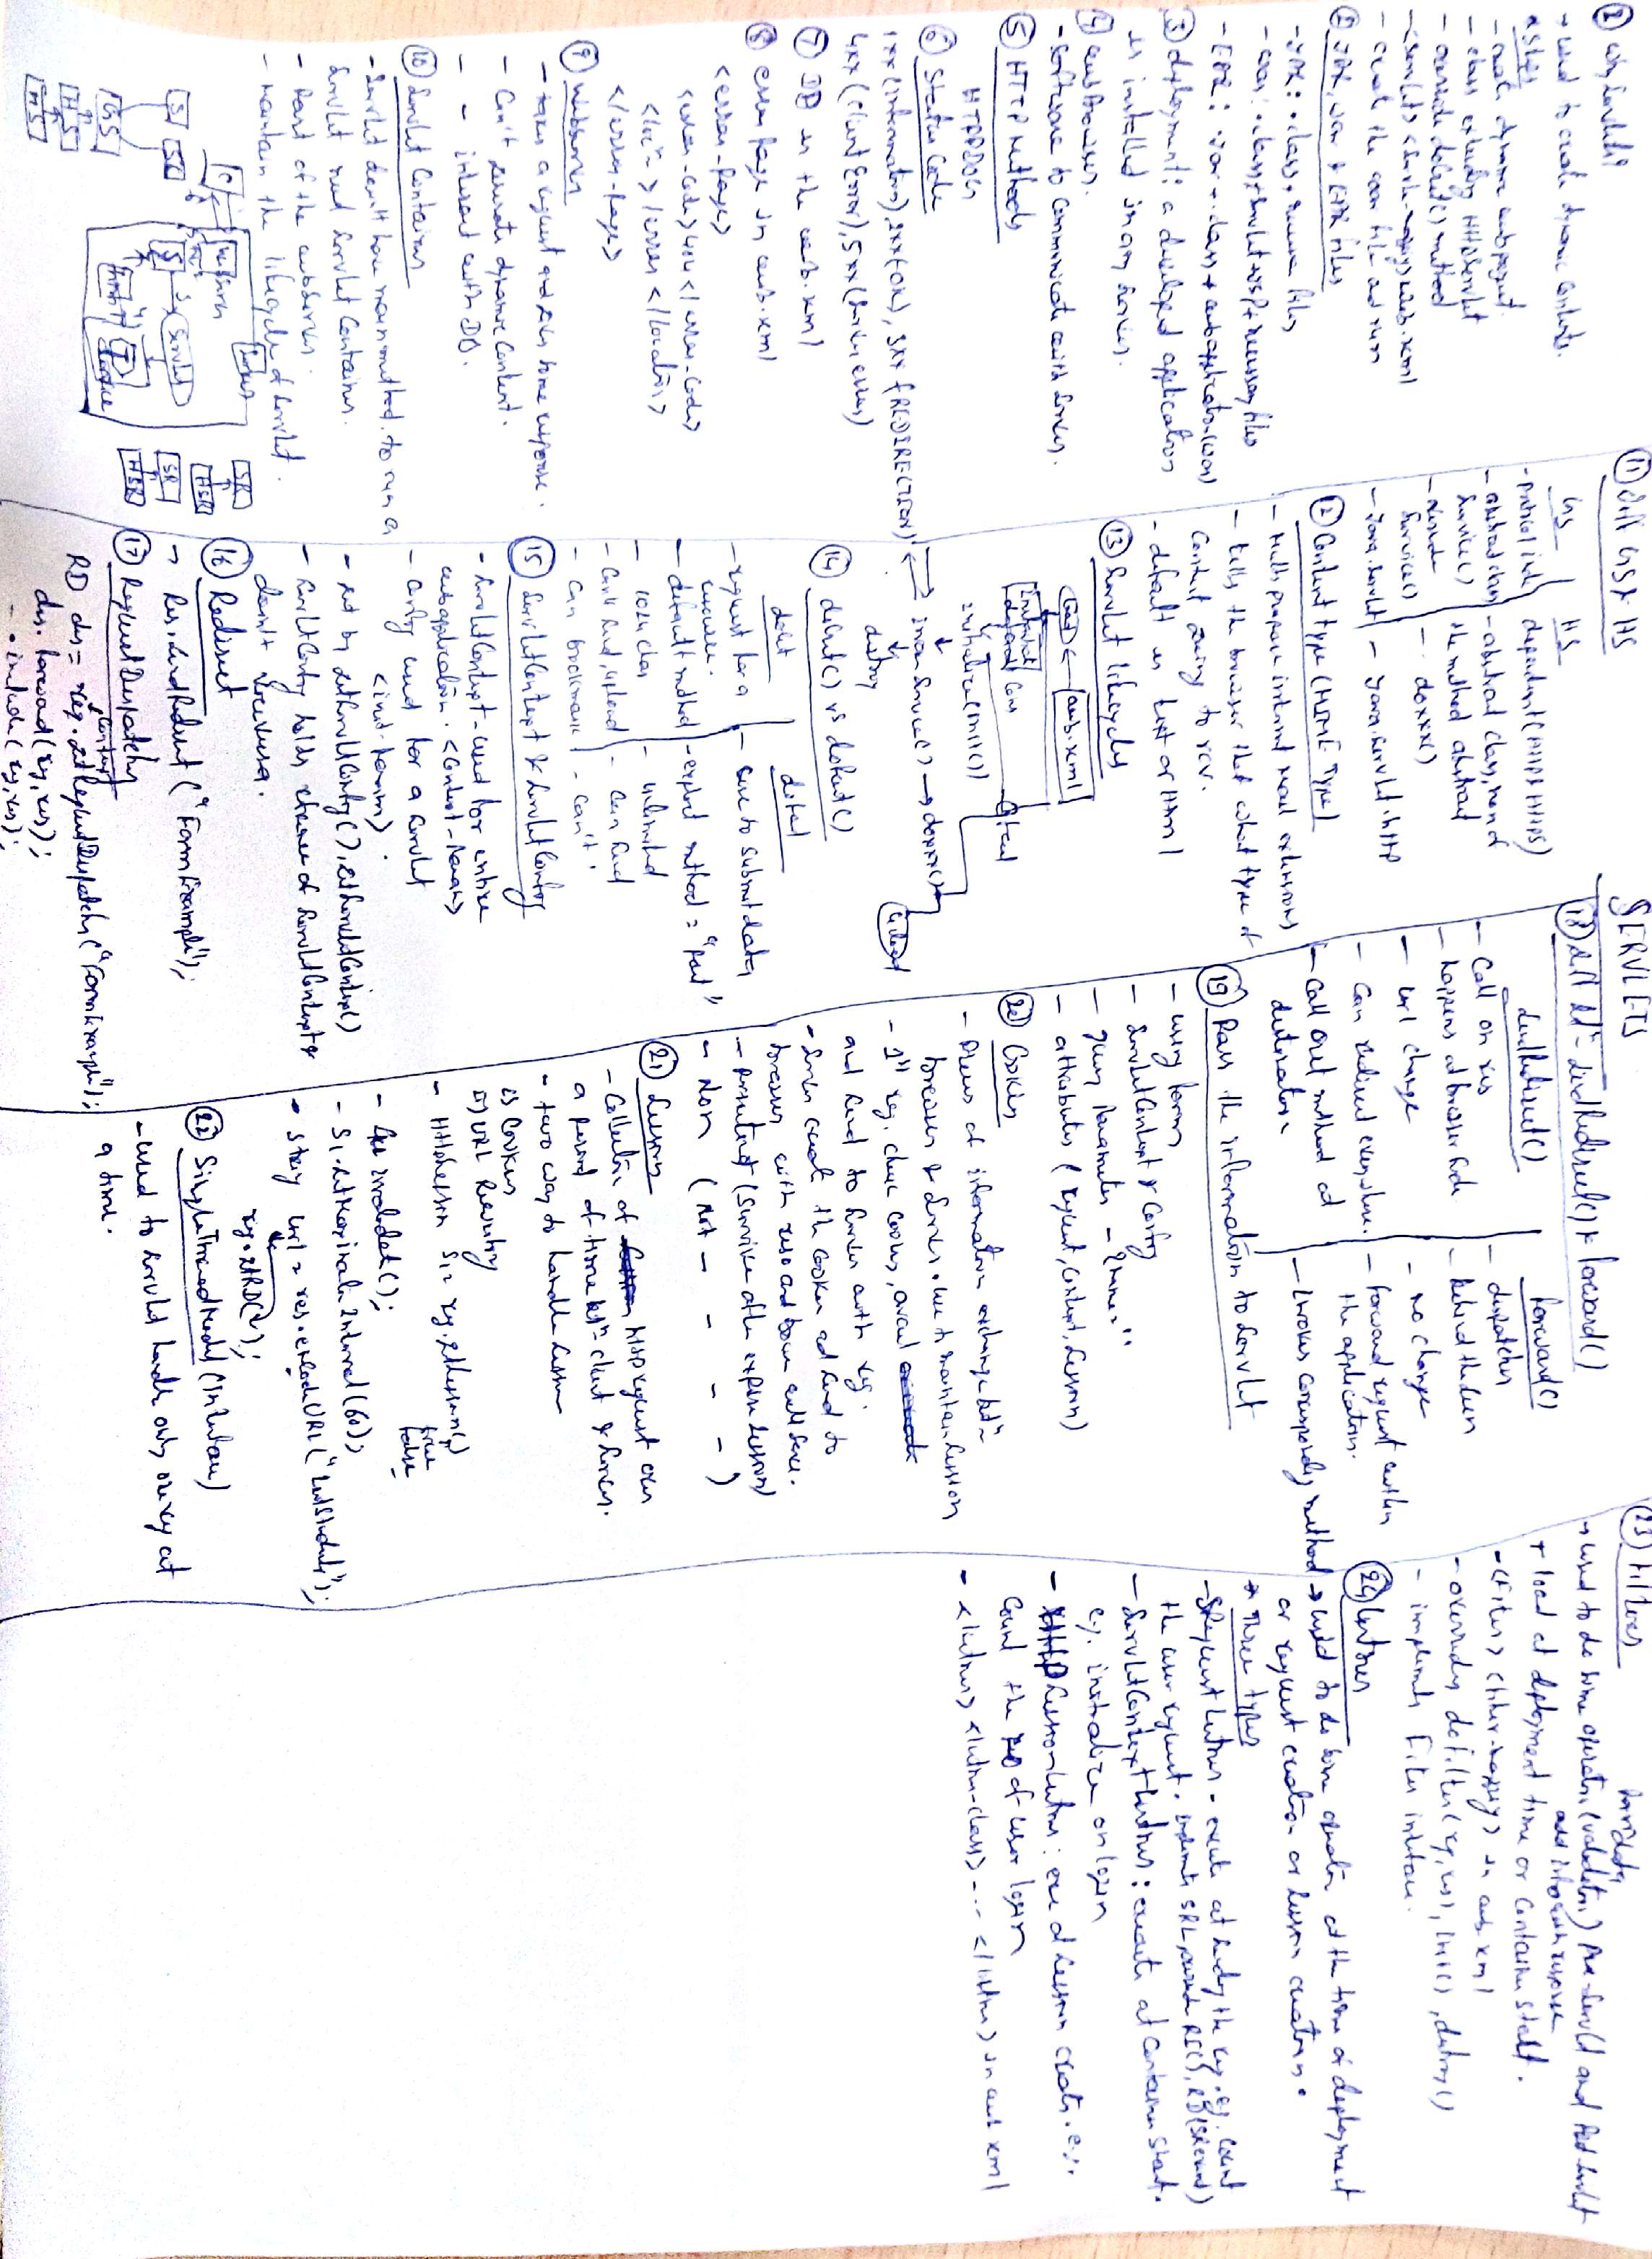 SERVLETS
① Why Servlet?
→ used to create dynamic contents.
* Steps
- create dynamic web project
- class extends HttpServlet
- override doGet() method
- <servlet> <servlet-mapping> web.xml
- create the war file and run
② JAR, war & EAR files
- JAR: .class, resource files
- war: .class + servlet + JSP + necessary files
- EAR: war + .class + web application (war)
③ deployment: a developed application
is installed in any server.
④ web browser.
- software to communicate with server.
⑤ HTTP Methods
HTPPDOG
⑥ Status Code
1xx (information), 2xx (OK), 3xx (REDIRECTION)
4xx (client error), 5xx (server error)
⑦ DD is the web.xml
⑧ error page in web.xml
<error-page>
<error-code>404</error-code>
<locn> /error </location>
</error-page>
⑨ webserver
- takes a request and gives some response.
- Can't generate dynamic content.
- interact with DB.
⑩ Servlet Container
- Servlet don't have main method. to run a
servlet need servlet container.
- Part of the webserver.
- maintain the lifecycle of servlet.
⑪ diff GS & HS
GS | HS
- protocol inde | dependent (HTTP & HTTPS)
- abstract class | - abstract class, none of
service() | the method abstract
- override | - doxxx()
service()
- javax.servlet | - javax.servlet.http
⑫ Content type (MIME Type)
- Multi purpose internet mail extensions
- tells the browser that what type of
content going to rcv.
- default is text or html
⑬ Servlet lifecycles
web.xml
initialize (init())
invoke service() → doxxx()
destroy
⑭ doGet() vs doPost()
doGet | doPost
- request for a | - use to submit data
resource.
- default method | - explicit method = "post"
- 1024 char | - unlimited
- can't send, upload | - can send
- can bookmark | - can't.
⑮ ServletContext & ServletConfig
- ServletContext - used for entire
web application. <context-param>
- config used for a servlet
<init-param>.
- get by getServletConfig(), getServletContext()
- ServletConfig holds reference of ServletContext &
doesn't viceversa.
⑯ Redirect
→ Res.sendRedirect("FormExample");
⑰ Request Dispatcher
context
RD dis = req.getRequestDispatcher("FormExample");
dis.forward(req, res);
- . include (req, res);
⑱ diff btn sendRedirect() & forward()
sendRedirect() | forward()
- call on res | - dispatcher
- happens at browser side | - behind the scene
- url change | - no change
- can redirect everywhere. | - forward request within
the application.
- call get method at | - invokes corresponding method
destination
⑲ Pass the information to servlet
- using form
- ServletContext & Config
- query Parameter - ?name=''
- attributes (request, context, session)
⑳ Cookies
- Pieces of information exchange btn
browser & server. use to maintain session
- 1st req. check cookies,
and send to server with req.
- Server create the cookie and send to
browser with reso and
- persistent (survive after expire session)
- Non ( not - - - - )
㉑ Session
- Collection of HTTP request over
a period of time btn client & server.
- two way to handle session
a) Cookies
b) URL Rewriting
- HttpSession s1 = req.getSession();
true
false
- invalidate();
- s1.setMaxInactiveInterval(60);
- String url = res.encodeURL("
req.getRD(url);
㉒ SingleThreadModel (Interface)
- used to servlet handle only one req at
a time.
㉓ Filters
→ used to do some operation (validation) Pre-servlet and Post servlet
add info with response
→ load at deployment time or container start.
- <filter> <filter-mapping> in web.xml
- override doFilter(req, res), init(), destroy()
- implements Filter interface.
㉔ listener
→ used to do some operation at the time of deployment
or request creation or session creation.
* Three types
- SRequestListener - execute at sending the req. eg. count
the user request. implements SRL, override RI(), RD(SREvent)
- ServletContextListener: execute at container start.
eg. initialize on login
- HttpSessionListener: exe at session create. eg.
Count the no of user login
- <listener> <listener-class> --- </listener> in web.xml